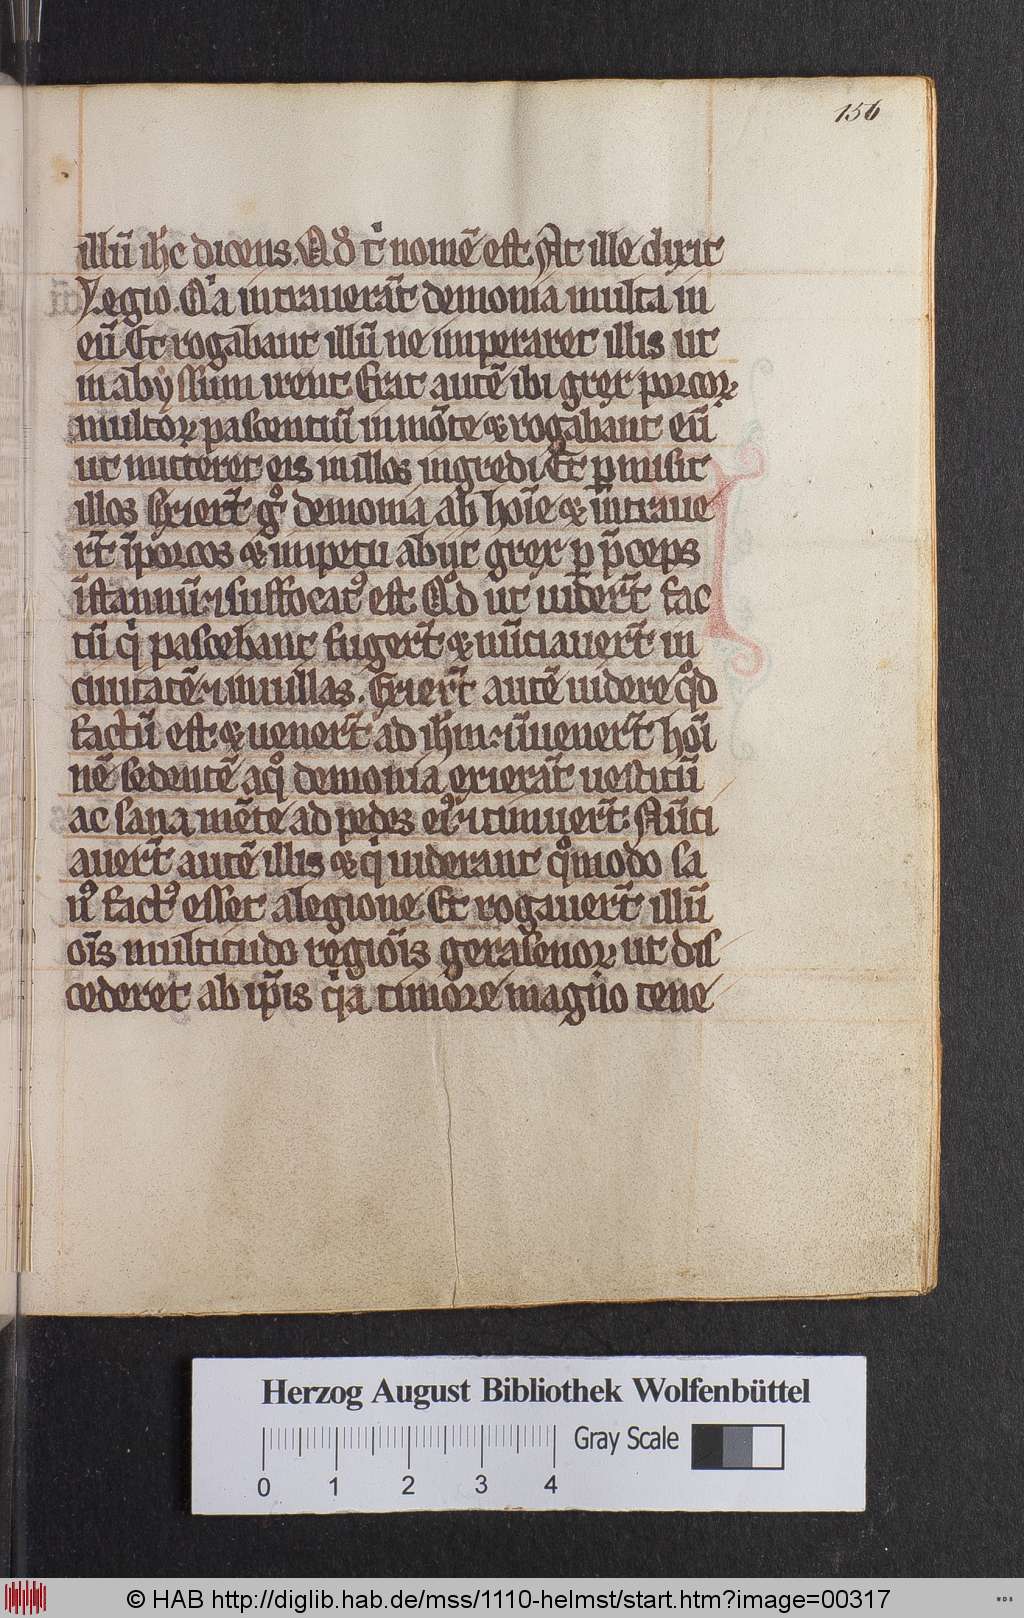 156
illū ih̄c dicens. Qd̄ tͥ nomē est. At ille dixit
Legio. Qͥa intraverāt demonia multa in
eū. Et rogabant illū ne imperaret illis ut
in abyssum irent. Erat autē ibi grex porcoꝝ
multoꝝ pascentiū in mōte ⁊ rogabant eū
ut mitteret eis in illos ingredi. Et ꝑmisit
illos. Exierūt gͦ demonia ab hoīe ⁊ intrave
rt̄ ī porcos ⁊ impetu abiit grex ꝑ p̄ceps
ī stannū ⁊ suffocatꝰ est. Qd̄ ut vidert̄ fac
tū qͥ pascebant fugert̄ ⁊ nūtiavert̄ in
civitatē ⁊ in villas. Exiert̄ autē videre qͦd
factū est ⁊ venert̄ ad ih̄m ⁊ īvenert̄ hoī
nē sedentē a qͦ demonia exierāt vestitū
ac sana mēte ad pedes eiꝰ ⁊ timuert̄. Nūti
avert̄ autē illis ⁊ qͥ viderant qͦmodo sa
nꝰ factꝰ esset a legione. Et rogavert̄ illū
oīs multitudo regiōis gerasenoꝝ ut dis
cederet ab ip̄is qͥa timore magno tene
Herzog August Bibliothek Wolfenbüttel
Gray Scale
0 1 2 3 4
© HAB http://diglib.hab.de/mss/1110-helmst/start.htm?image=00317